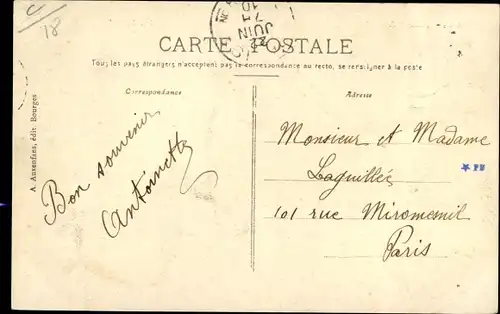 18
JUIN
CARTE POSTALE
Tous les pays étrangers n'acceptent pas la correspondance au recto, se renseigner à la poste
Correspondance
Adresse
A. Auxenfans, édit. Bourges
Bon souvenir
Antoinette
Monsieur et Madame
Laguillée
101 rue Miromesnil
Paris